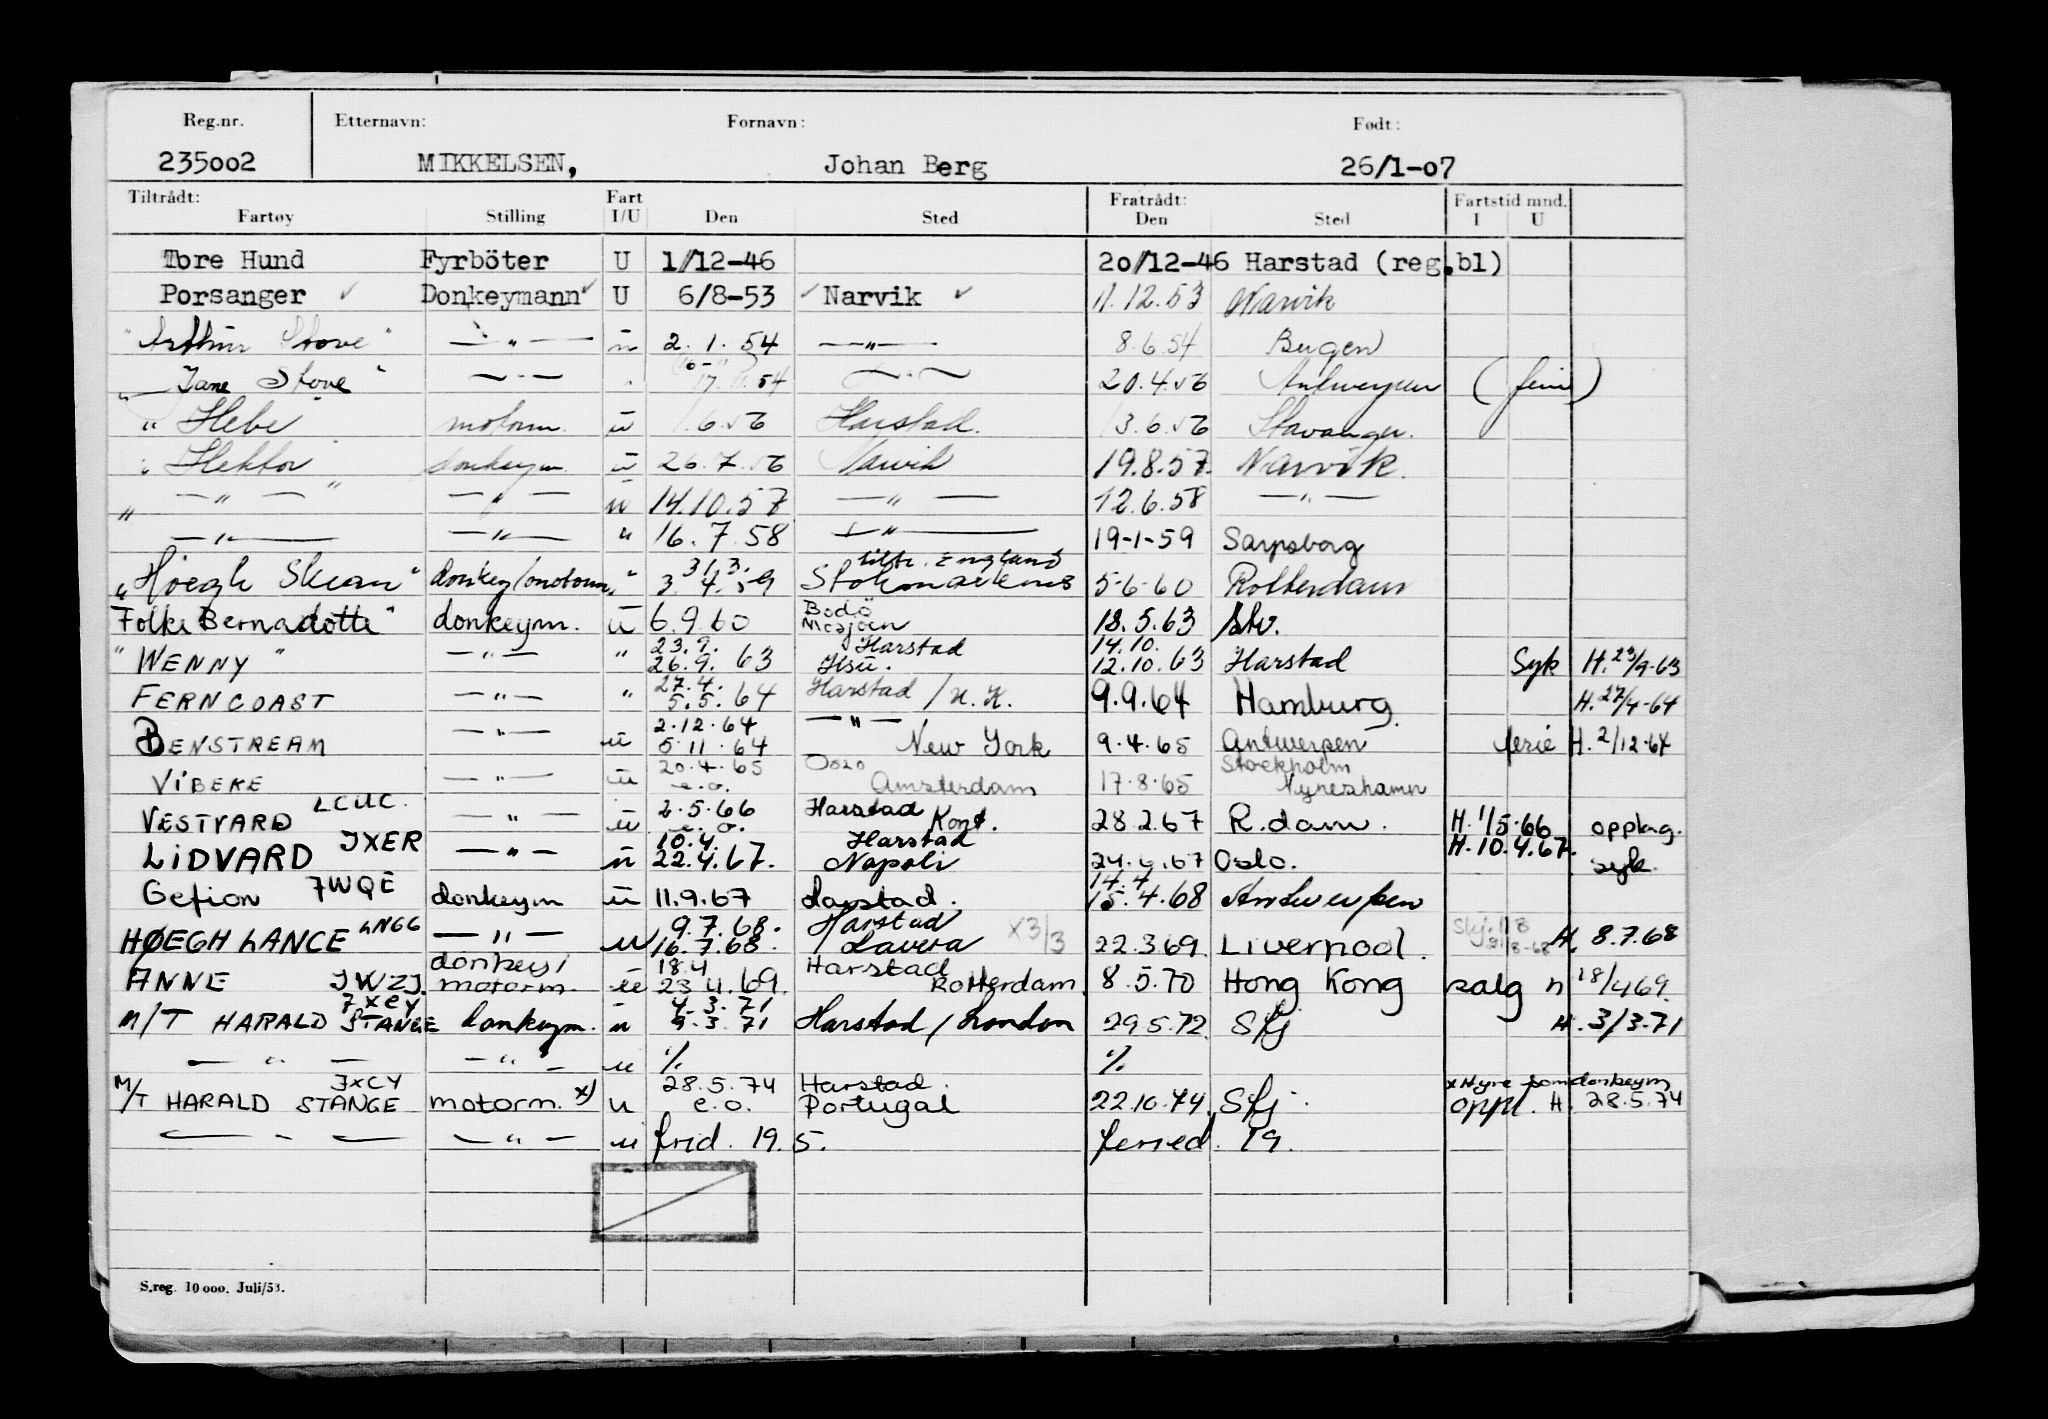 Reg.nr. Etternavn: Fornavn: Født:
235002 MIKKELSEN, Johan Berg 26/1-07
Tiltrådt: Fart Fratrådt: Fartstid mnd.
Fartøy Stilling I/U Den Sted Den Sted I U
Tore Hund Fyrböter U 1/12-46 20/12-46 Harstad (reg.bl)
Porsanger ✓ Donkeymann ✓ U 6/8-53 ✓ Narvik ✓ 11.12.53 Narvik
"Arthur Stove" — " — u 2.1.54 — " — 8.6.54 Bergen
" Jane Stove" — " — " 17.11.54 — " — 20.4.56 Antwerpen (ferie)
" Hebe" motorm. u 1.6.56 Harstad. 13.6.56 Stavanger.
" Hektor" donkeym u 26.7.56 Narvik 19.8.57. Narvik.
" — " — — " — u 14.10.57 — " — 12.6.58 — " —
— " — — " — " 16.7.58 — " — 19-1-59 Sarpsborg
31.3. tiltr. England
"Høegh Skean" donkey/motorm. " 3.4.59 Stokmarknes 5-6-60 Rotterdam
Bodö
Folke Bernadotte" donkeym. u 6.9.60 Mosjøen 18.5.63 Stv.
23.9. Harstad 14.10.
"WENNY" — " — " 26.9.63 Hsu. 12.10.63 Harstad Syk H.23/9-63
27.4.
FERNCOAST — " — " 5.5.64 Harstad / U.K. 9.9.64 Hamburg. H.27/4-64
2.12.64 — " —
BENSTREAM — " — u 5.11.64 New York 9.4.65 Antwerpen ferie H.2/12-64
20.4.65 Oslo Stockholm
VIBEKE — " — u e.o. Amsterdam 17.8.65 Nyneshamn
LCUC. 2.5.66 Harstad
VESTVARD — " — u e.o. Kont. 28.2.67 R.dam. H. 1/5.66 opplag.
JXER 10.4. Harstad H.10.4.67.
LIDVARD — " — u 22.4.67. Napoli 24.4.67 Oslo. syk.
JWQE 14.4
Gefion donkeym u 11.9.67 Harstad. 15.4.68 Antwerpen
LNGG 9.7.68. Harstad
HØEGH LANCE — " — u 16.7.68. Lavera x3/3 22.3.69. Liverpool. H. 8.7.68
donkey/ 18.4 Harstad
ANNE JWZJ. motorm. u 23.4.69. Rotterdam. 8.5.70 Hong Kong salg H 18/4 69.
JXCY 4.3.71
M/T HARALD STANGE donkeym. u 9.3.71 Harstad / London 29.5.72 Sfj H. 3/3.71
— " — — " — u %. %.
JXCY 28.5.74 Harstad. x Hyre som donkeym
M/T HARALD STANGE motorm. x) u e.o. Portugal 22.10.74. Sfj. oppl. H. 28.5.74
— " — — " — u frid. 19.5. feried. 19.
S.reg. 10 000. Juli/53.